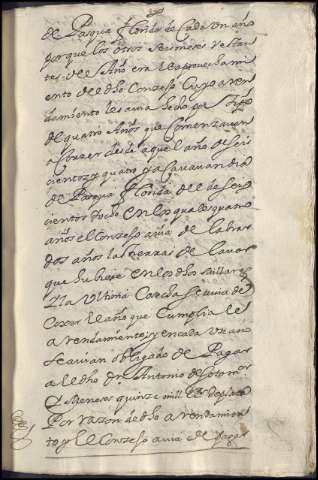 de Pasqua florida de Cada Un año
porque los otros seis meses restan
tes del Año era el aprovechami
ento del dho Conzejo Cuyo aren
damiento les avia hecho por tpo
de quatro Años que Comenzavan
a Correr desde aquel año de seis
cientos y quatro y acavavan dia
de Pasqua florida del de seis
cientos y ocho en los quales quatro
años el Conzejo avia de labrar
dos años las tierras de lavor
que hubiese en los dhos millares
Y la Ultima Coxecha se avia de
Coxer el año que Cumplia el
arrendamiento y en cada Un año
se avian obligado de Pagar
al dho Dn Antonio de Sotomor
y Meneses quince mill Rs de plata
Por razon de dho arrendamien
to y el Conzejo avia de pagar